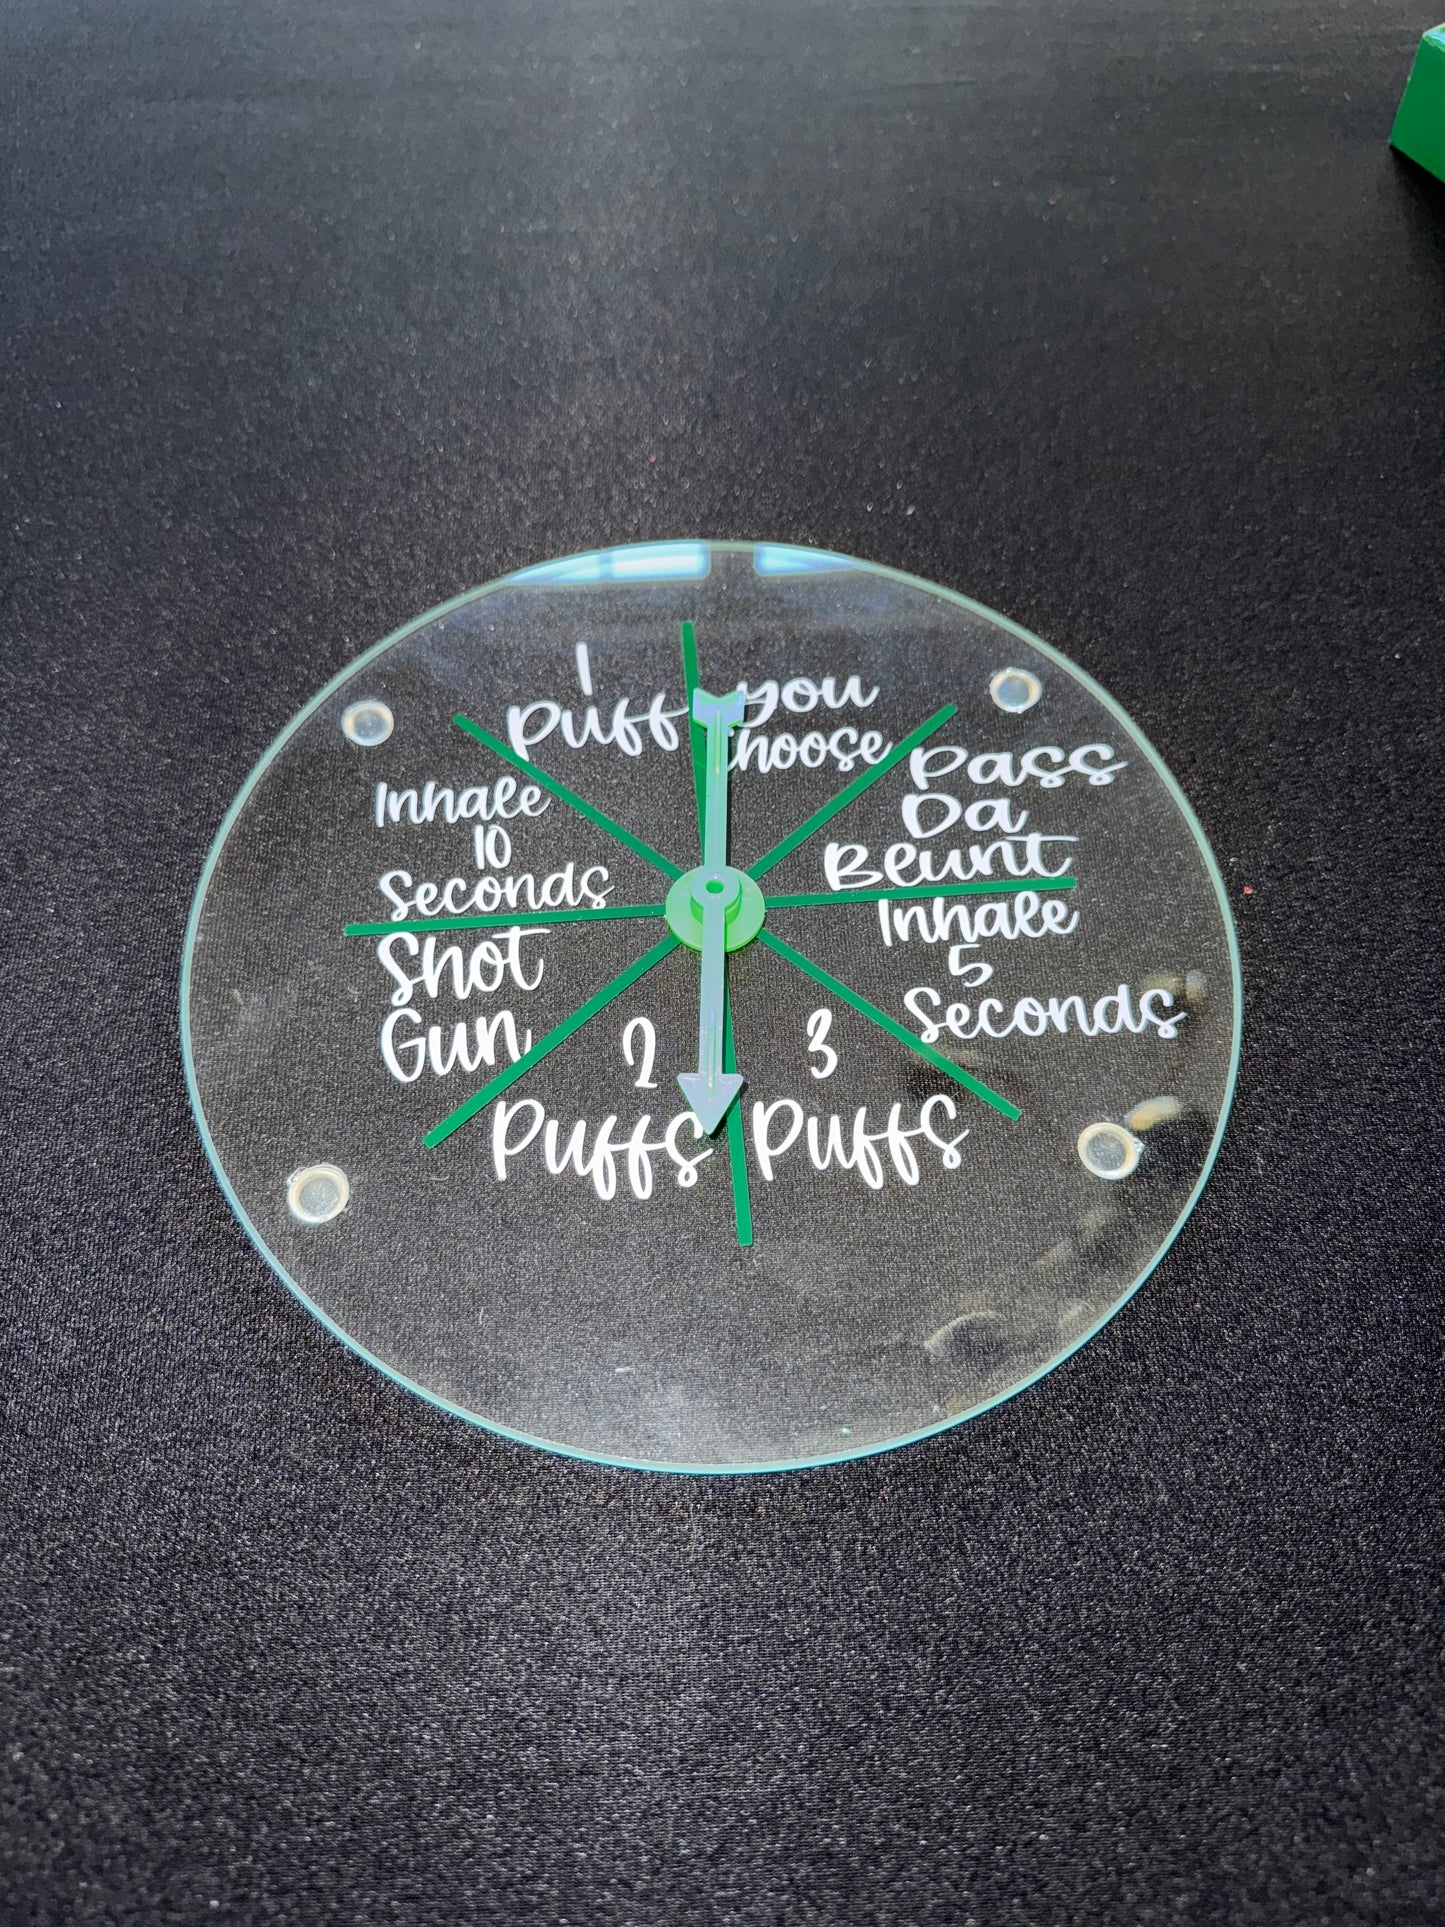 1
Puff
you
choose
Pass
Da
Blunt
Inhale
5
Seconds
3
Puffs
2
Puffs
Shot
Gun
Inhale
10
Seconds